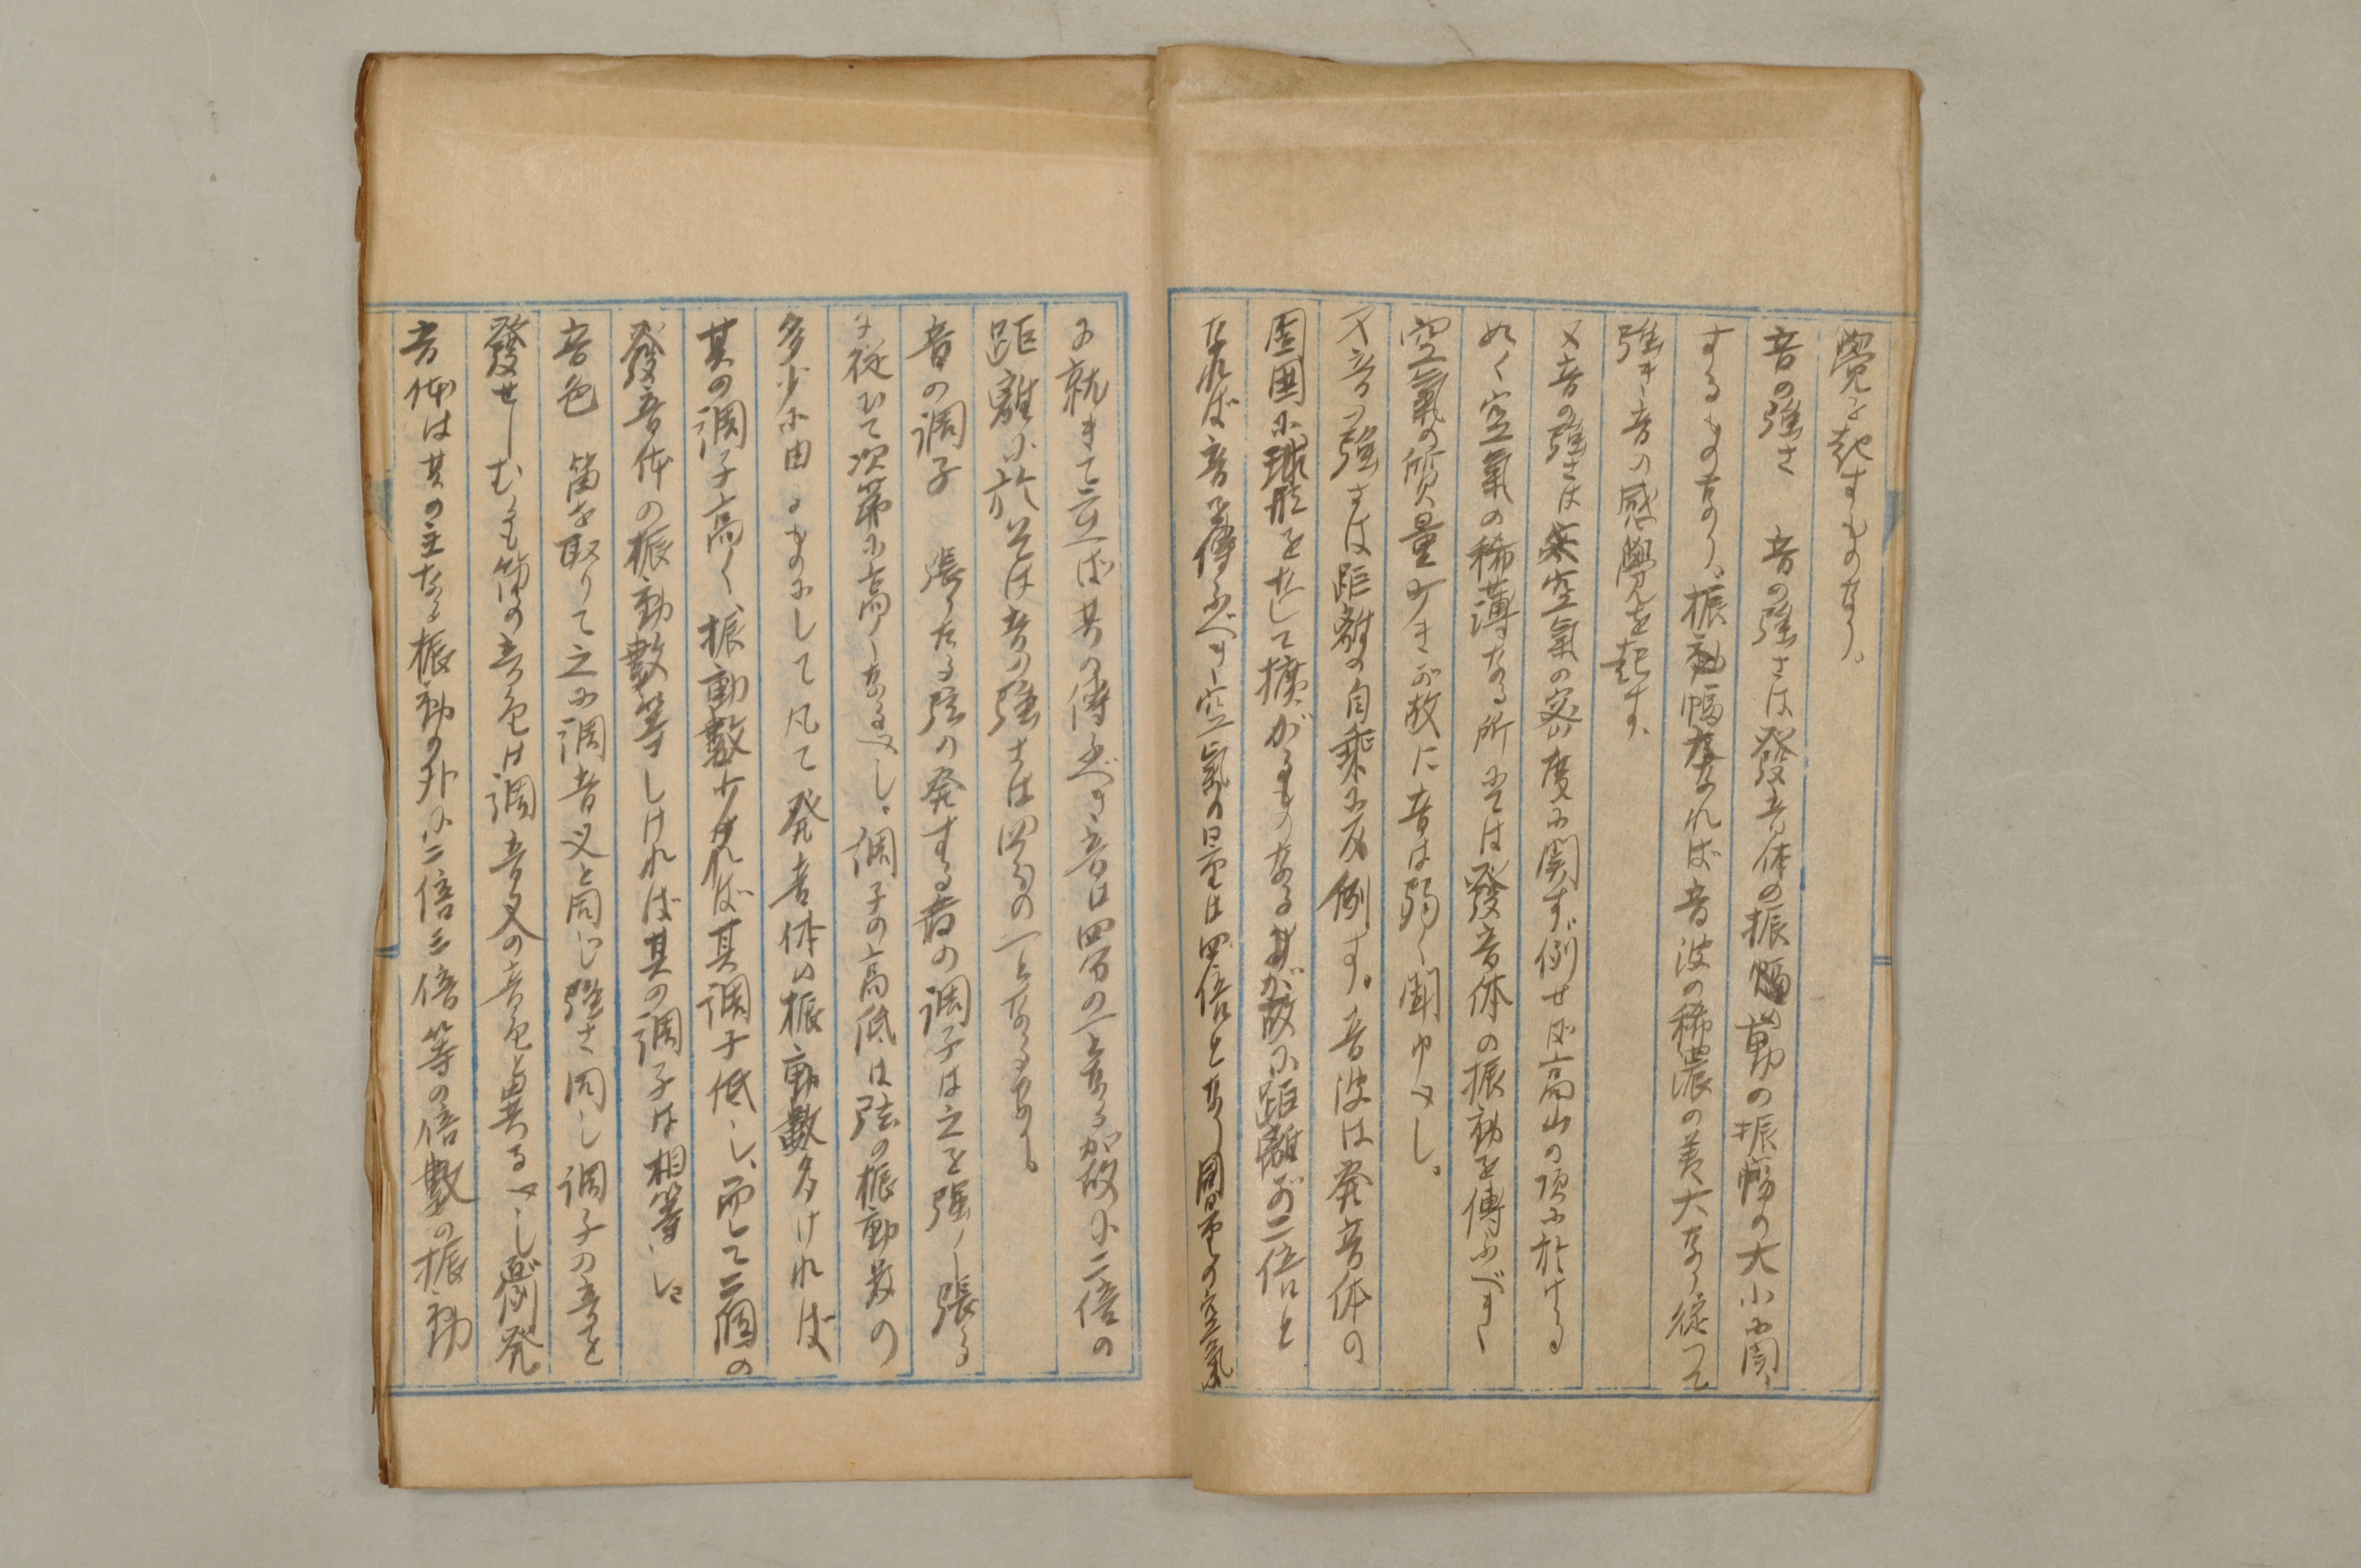 覺を起すものなり。
音の強さ　音の強さは發音体の振動の振幅の大小に関
するものなり。振動幅大なれば音波の稀濃の差大なり從つて
強き音の感覺を起す。
又音の強さは空氣の密度に関す例せば高山の頂に於ける
如く空氣の稀薄なる所にては發音体の振動を傳ふべき
空氣の質量少きが故に音は弱く聞ゆべし。
又音の強さは距離の自乗に反例す。音波は発音体の
周囲に球形をなして擴がるものなるが故に距離が二倍と
なれば音を傳ふべき空氣の量は四倍となり同量の空氣
に就きて云へば其の傳ふべき音は四分の一となるが故に二倍の
距離に於ては音の強さは四分の一となるなり。
音の調子　張りたる弦の発する音の調子は之を強く張る
に従ひて次第に高くなるべし。調子の高低は弦の振動数の
多少に由るものにして凡て発音体の振動數多ければ
其の調子高く、振動數少ければ其調子低し、而して二個の
發音体の振動數等しければ其の調子は相等し
音色　笛を取りて之に調音叉と同じ強さ同じ調子の音を
發せしむるも笛の音色は調音叉の音色と異るべし 発
音体は其の主なる振動の外に二倍三倍等の倍數の振動